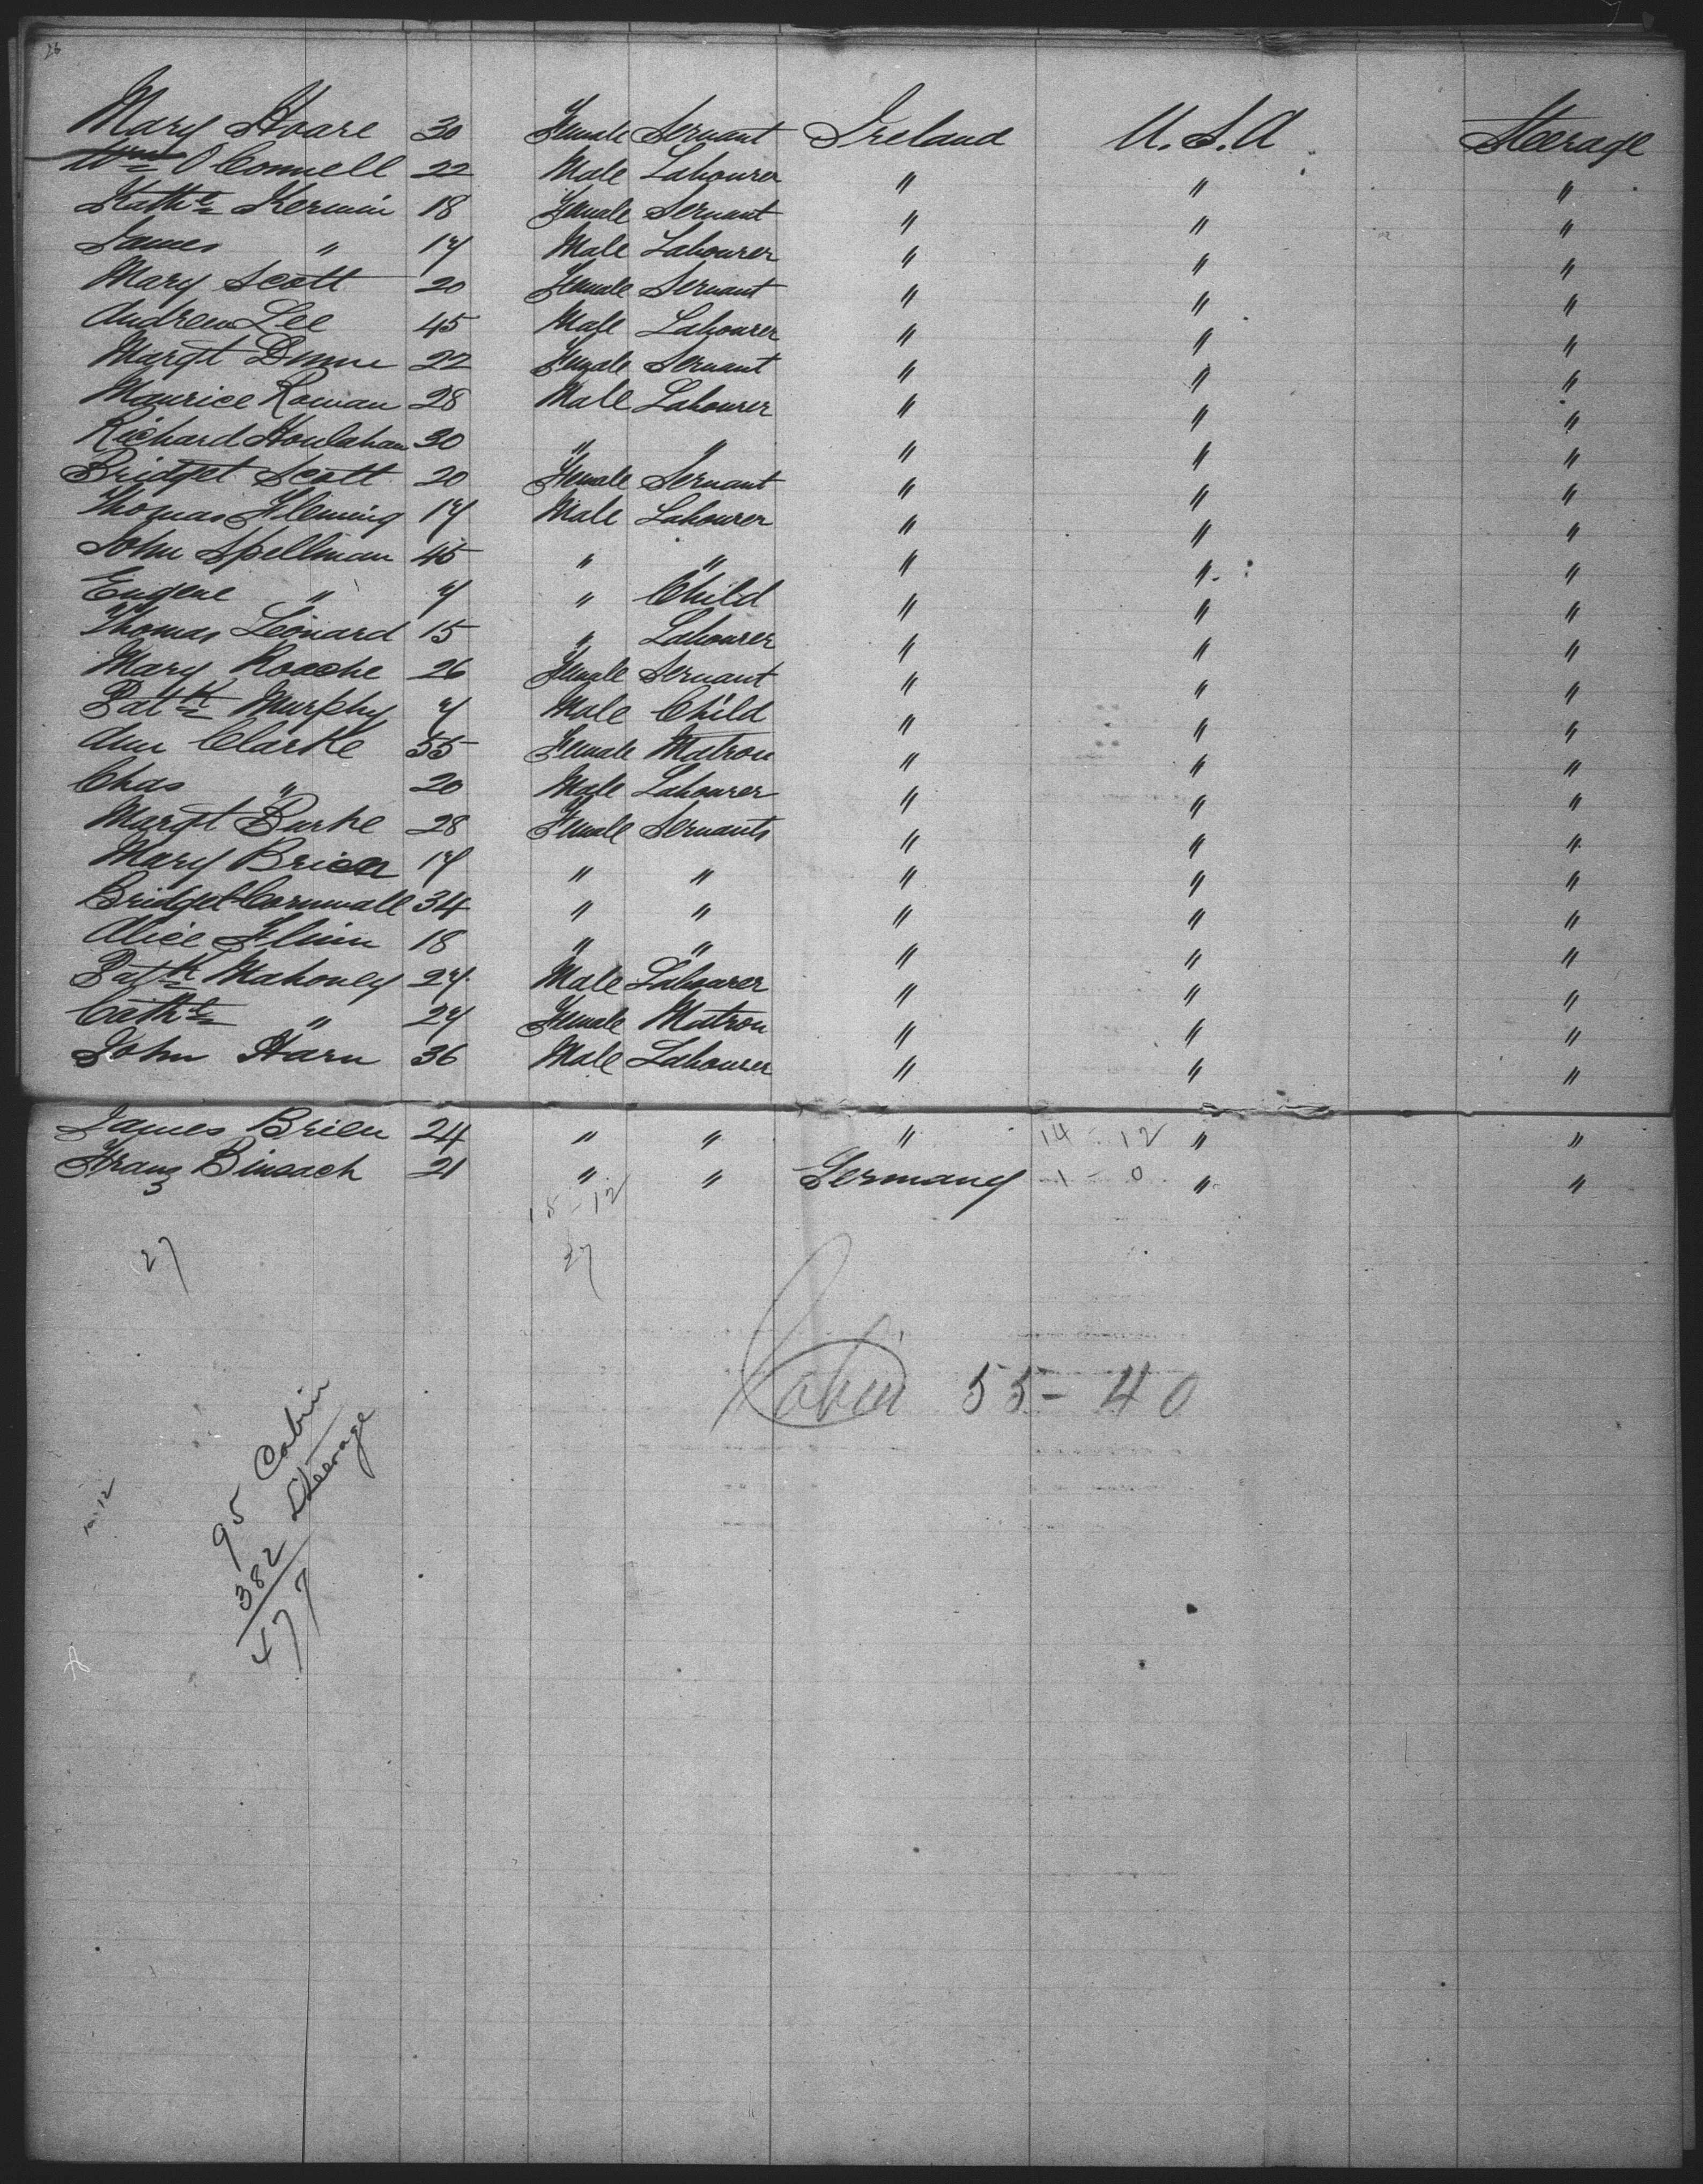 26
Mary Hoare 30 Female Servant Ireland U.S.A Steerage
Wm O'Connell 22 Male Labourer " " "
Kathe Kerwin 18 Female Servant " " "
James " 17 Male Labourer " " "
Mary Scott 20 Female Servant " " "
Andrew Lee 45 Male Labourer " " "
Margt Dunne 22 Female Servant " " "
Maurice Rowan 28 Male Labourer " " "
Richard Houlahan 30 " " " " "
Bridget Scott 20 Female Servant " " "
Thomas Fleming 17 Male Labourer " " "
John Spellman 45 " " " " "
Eugene " 7 " Child " " "
Thomas Leonard 15 " Labourer " " "
Mary Roache 26 Female Servant " " "
Patk Murphy 7 Male Child " " "
Ann Clarke 55 Female Matron " " "
Chas " 20 Male Labourer " " "
Margt Burke 28 Female Servants " " "
Mary Brien 17 " " " " "
Bridget Cornwall 34 " " " " "
Alice Flinn 18 " " " " "
Patk Mahoney 27 Male Labourer " " "
Cathe " 27 Female Matron " " "
John Harn 36 Male Labourer " " "
James Brien 24 " " " 14 - 12 " "
Franz 21 " " Germany 1 - 0 " "
15 - 12
27 27
Cabin 55 - 40
95 Cabin
382 Steerage
477